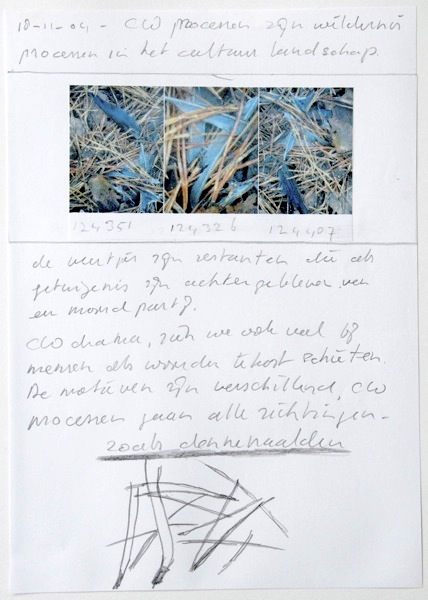 18-11-04 - CW processen zijn wildernis
processen in het cultuur landschap.
124351 124326 124407
de veertjes zijn restanten die als
getuigenis zijn achtergebleven van
en moordpartij.
CW drama, zien we ook veel bij
mensen als woorden tekort schieten.
De motieven zijn verschillend, CW
processen gaan alle richtingen -
zoals dennenaalden